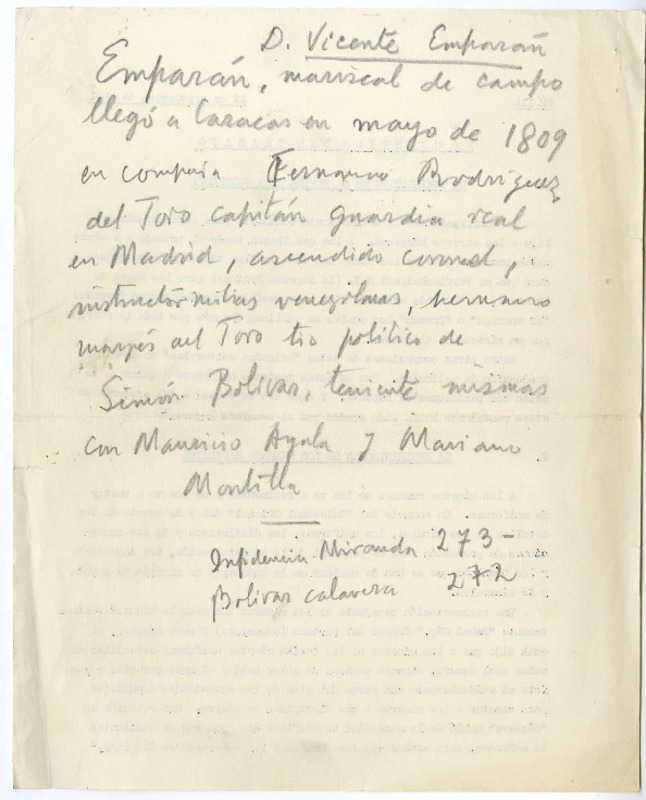 D. Vicente Emparán
Emparán, mariscal de campo
llegó a Caracas en mayo de 1809
en compañía Fernando Rodríguez
del Toro capitán guardia real
en Madrid, ascendido coronel,
instructor milicias venezolanas, hermano
marqués del Toro tio político de
Simón Bolívar, teniente mismas
con Mauricio Ayala y Mariano
Montilla
Infidencia Miranda 273-
Bolívar calavera 272